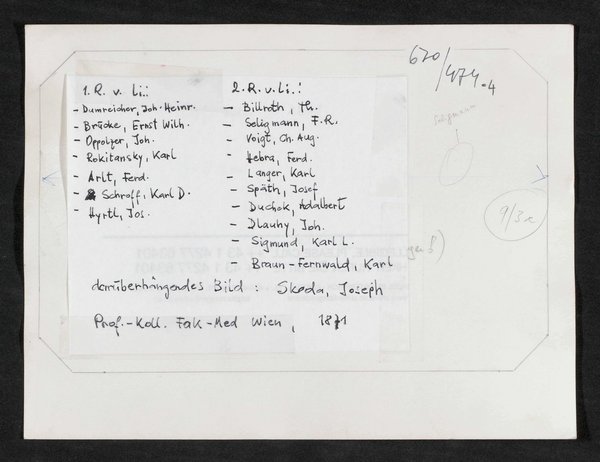 620/474-4
1. R. v. Li.:
- Dumreicher, Joh. Heinr.
- Brücke, Ernst Wilh.
- Oppolzer, Joh.
- Rokitansky, Karl
- Arlt, Ferd.
- Schroff, Karl D.
- Hyrtl, Jos.
2. R. v. Li.:
- Billroth, Th.
- Seligmann, F.R.
- Voigt, Ch. Aug.
- Hebra, Ferd.
- Langer, Karl
- Späth, Josef
- Duchek, Adalbert
- Dlauhy, Joh.
- Sigmund, Karl L.
- Braun-Fernwald, Karl
darüberhängendes Bild: Skoda, Joseph
Prof.-Koll. Fak-Med Wien, 1871
Seligmann